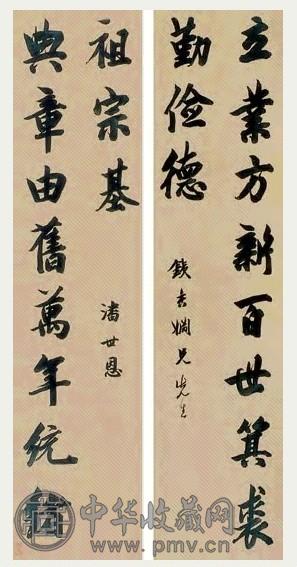 立業方新百世箕裘
勤儉德
姻兄先生
典章由舊萬年統
祖宗基
潘世恩
中华收藏网
www.pmv.cn